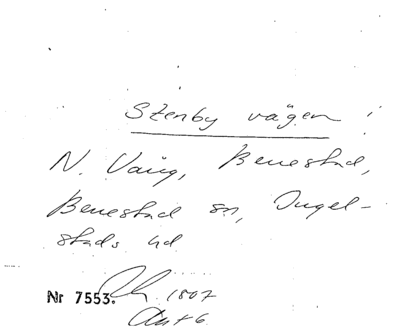 Stenby vägen i
N. Vång, Benestad,
Benestad sn, Ingel-
stads hd
Nr 7553. 1807